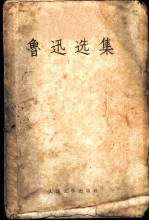 鲁迅选集
人民文学出版社